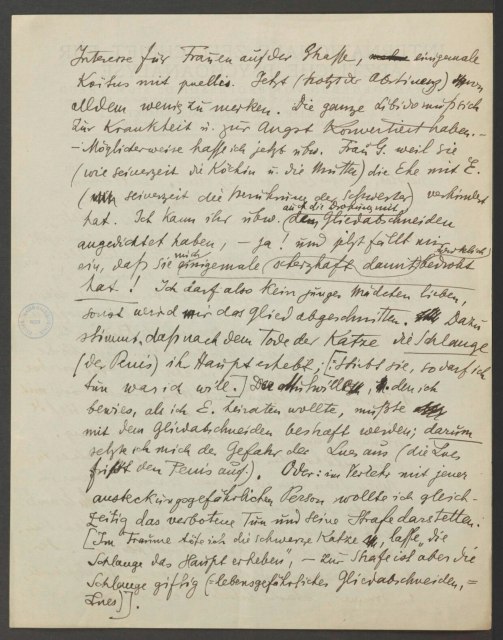 Interesse für Frauen auf der Straße, einigemale
Koitus mit puellis. Jetzt (trotz der Abstinenz) von
alldem wenig zu merken. Die ganze Libido muß sich
zur Krankheit u. zur Angst konvertiert haben. -
- Möglicherweise hasse ich jetzt ubw. Frau G. weil sie
(wie seinerzeit die Köchin u. die Mutter) die Ehe mit E.
( seinerzeit die Berührung der Schwester) verhindert
hat. Ich kann ihr ubw. auch die Drohung mit dem Gliedabschneiden
angedichtet haben, - ja! und jetzt fällt mir
ein, daß sie mich einigemale (scherzhaft) damit wirklich bedroht
hat! Ich darf also kein junges Mädchen lieben,
sonst wird mir das Glied abgeschnitten. Dazu
stimmt, daß nach dem Tode der Katze die Schlange
(der Penis) ihr Haupt erhebt; [: Stirbt sie, so darf ich
tun was ich will.] Der Mutwille, den ich
bewies, als ich E. heiraten wollte, mußte
mit dem Gliedabschneiden bestraft werden; darum
setzte ich mich der Gefahr der Lues aus (die Lues
frißt den Penis auf). Oder: im Verkehr mit jener
ansteckungsgefährlichen Person wollte ich gleich-
zeitig das verbotene Tun und seine Strafe darstellen.
[Im Traume töte ich die schwarze Katze, lasse "die
Schlange das Haupt erheben", - zur Strafe ist aber die
Schlange giftig (= lebensgefährliches Gliedabschneiden, =
Lues)].